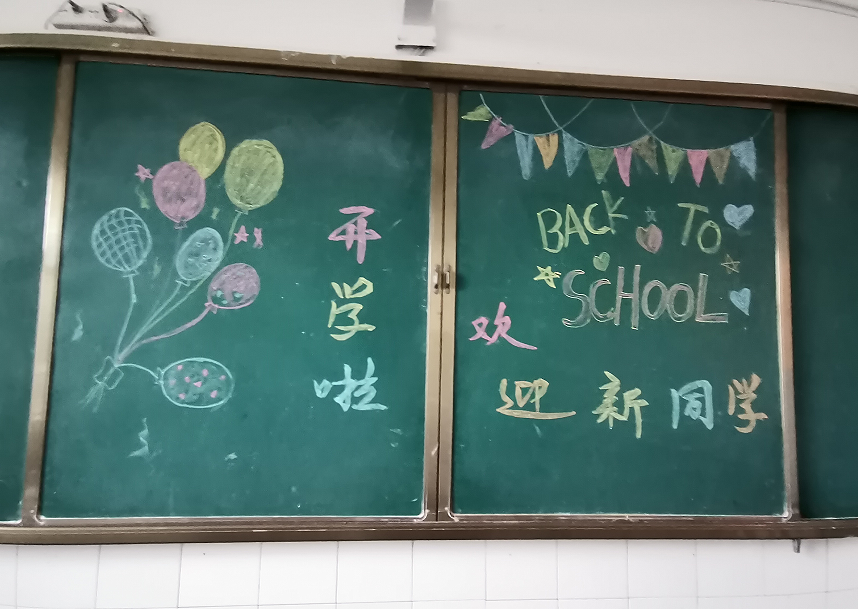 开学啦
BACK TO
SCHOOL
欢迎新同学